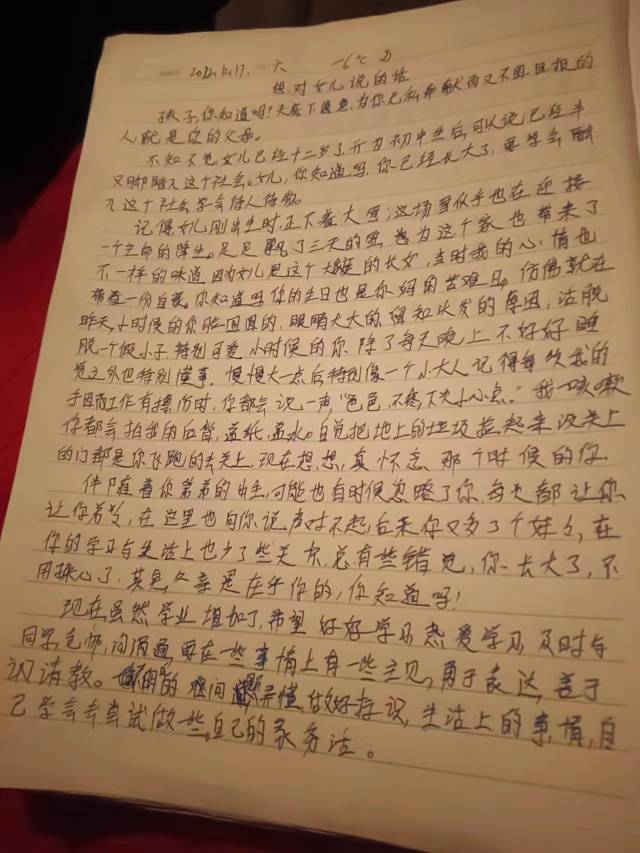 2022.12.17. 六 -6℃
想对女儿说的话
孩子,你知道吗?天底下愿意,为你无私奉献而又不图回报的
人就是你的父母。
不知不觉女儿已经十二岁了,升为初中生后,可以说已经半
只脚踏入这个社会。女儿,你知道吗,你已经长大了,要学会融
入这个社会学会待人待物。
记得女儿刚出生时,正下着大雪;这场雪似乎也在迎接
一个生命的降生。足足飘了三天的雪,也为这个家也带来了
不一样的味道,因为女儿是这个家的长女,当时我的心情也
带着一份自豪。你知道吗你的生日也是你妈的苦难日,仿佛就在
昨天,小时候的你脸圆圆的,眼睛大大的,留短头发的原因,活脱
脱一个假小子,特别可爱,小时候的你,除了每天晚上不好好睡
觉之外也特别懂事,慢慢大一点后特别像一个小大人,记得每次我的
手因而工作有擦伤时,你都会说一声,"爸爸,不疼,下次小心点。"我一咳嗽
你都会拍我的后背,递纸,递水。自觉把地上的垃圾捡起来,没关上
的门都是你飞跑的去关上,现在想想,真怀念那个时候的你.
伴随着你弟弟的出生,可能也有时候忽略了你,每也都让你
让你弟弟,在这里也向你说声对不起,后来你又多了个妹妹,在
你的学习与生活上也少了些关,总有些错觉,你长大了,不
用操心了,其实,父亲是在乎你的,你知道吗!
现在虽然学业增加了,希望好好学习,热爱学习,及时与
同学老师,沟沟通,要在一些事情上有一些主见,勇于表达,善于
请教。的 弄懂,做好存识,生活上的事情,自
己学会去尝试做一些自己的家务活。